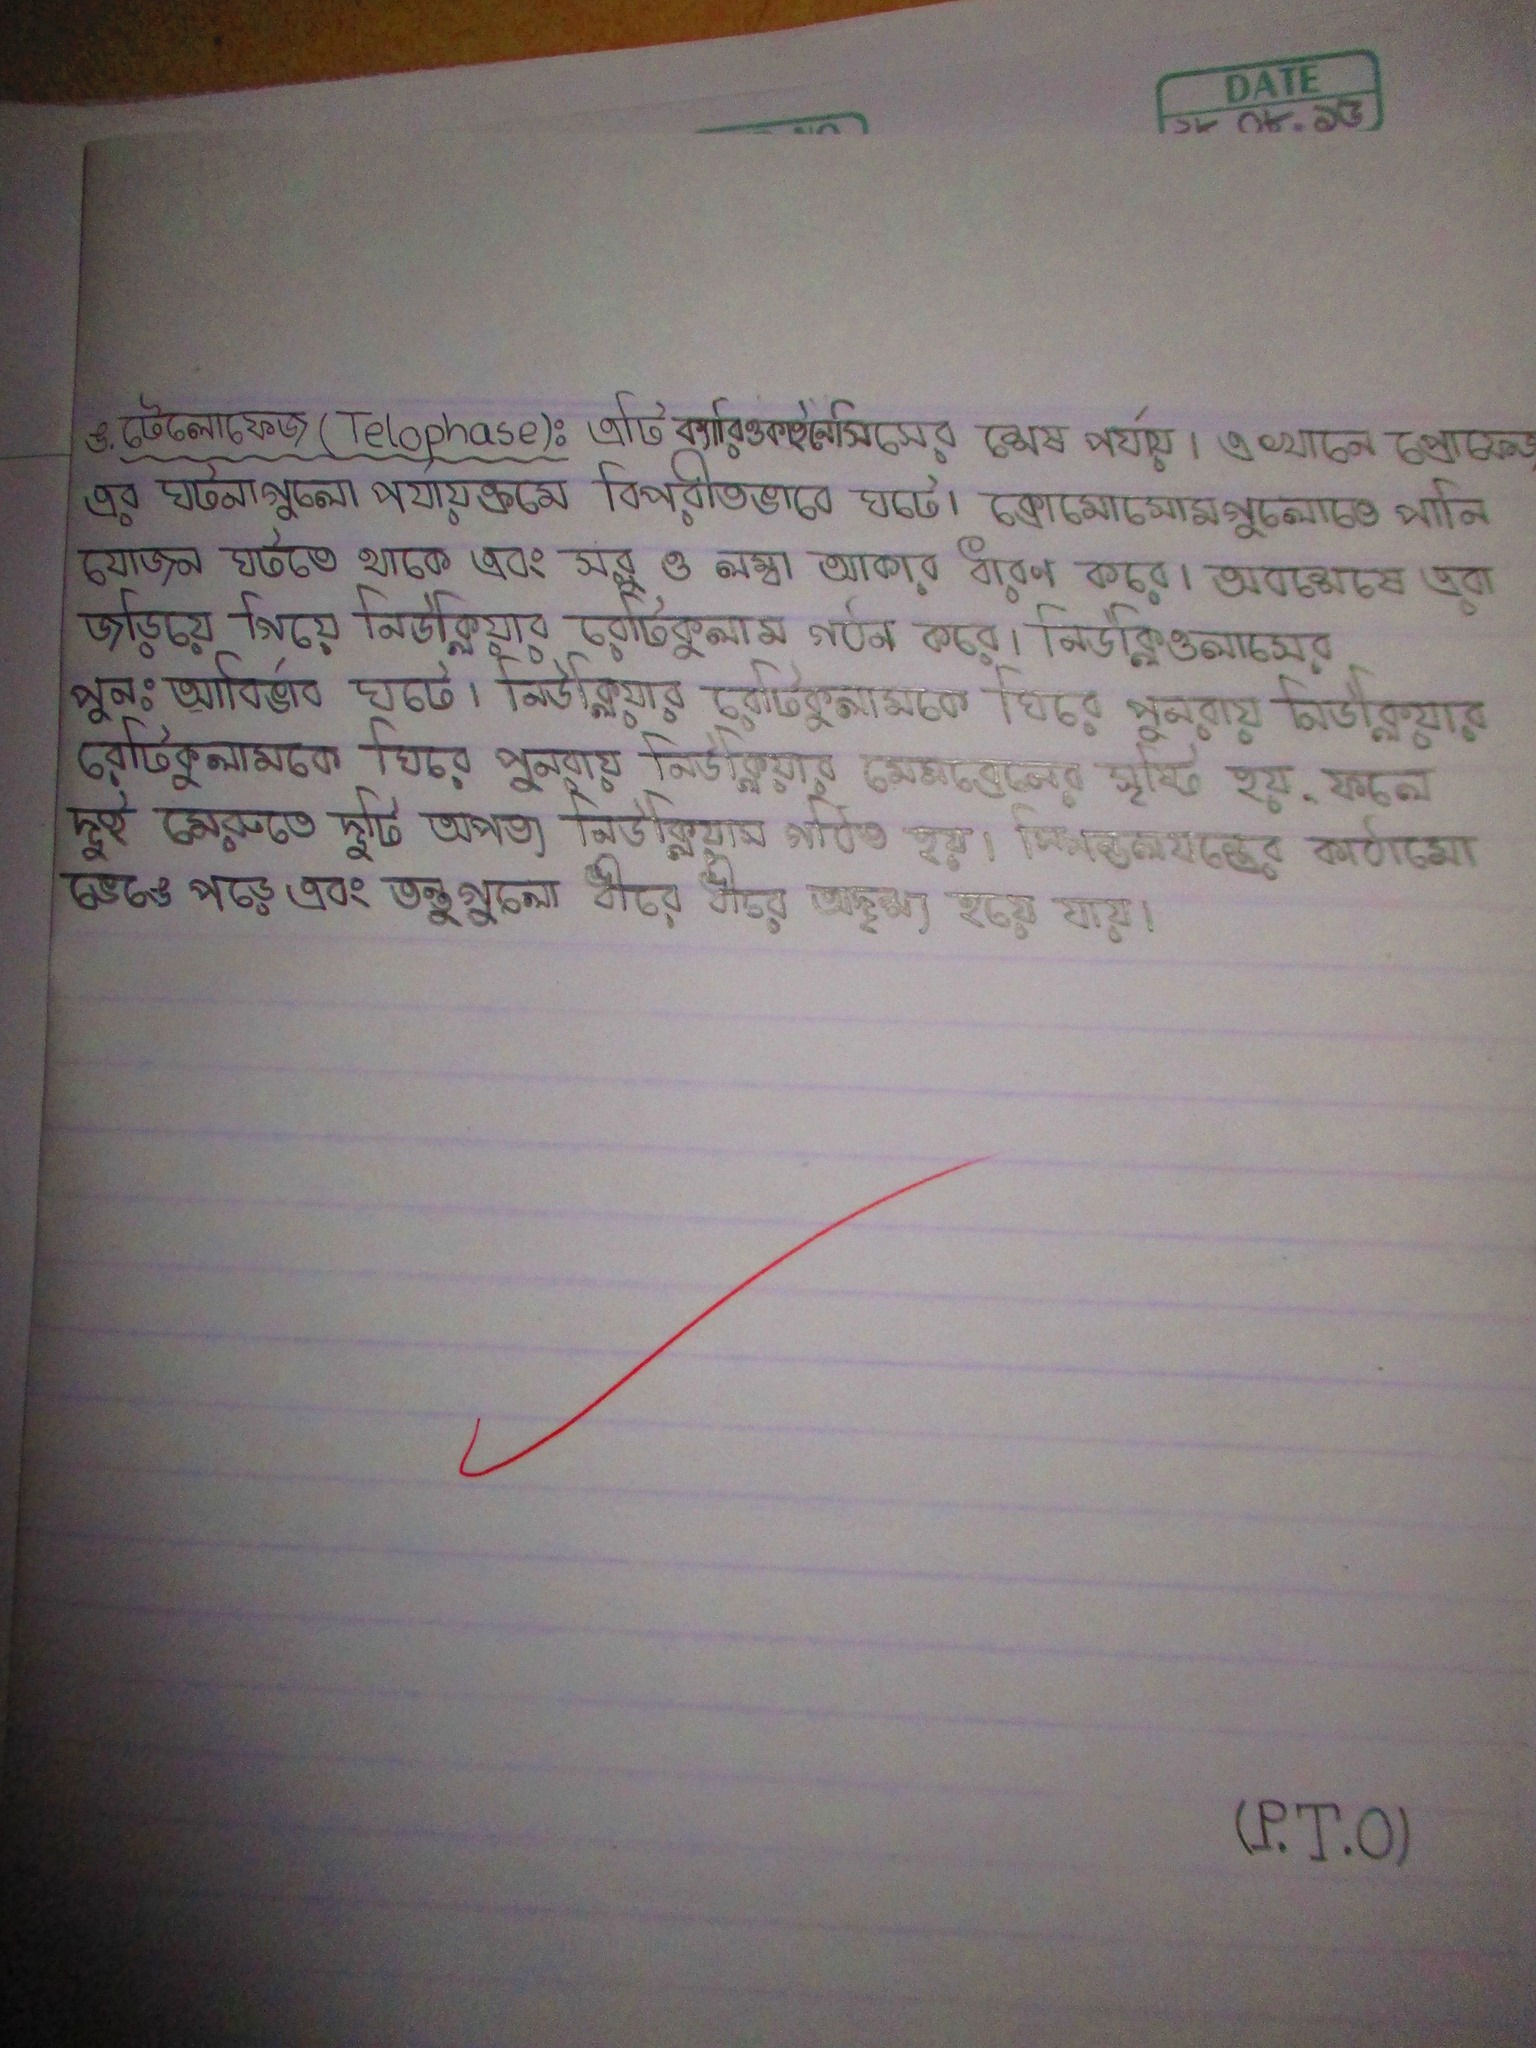 DATE
ঙ. টেলোফেজ (Telophase): এটি ক্যারিওকাইনেসিসের শেষ পর্যায়। এখানে প্রোফেজ
এর ঘটনাগুলো পর্যায়ক্রমে বিপরীতভাবে ঘটে। ক্রোমোসোমগুলোতে পানি
যোজন ঘটতে থাকে এবং সরু ও লম্বা আকার ধারণ করে। অবশেষে এরা
জড়িয়ে গিয়ে নিউক্লিয়ার রেটিকুলাম গঠন করে। নিউক্লিওলাসের
পুনঃ আবির্ভাব ঘটে। নিউক্লিয়ার রেটিকুলামকে ঘিরে পুনরায় নিউক্লিয়ার
রেটিকুলামকে ঘিরে পুনরায় নিউক্লিয়ার মেমব্রেনের সৃষ্টি হয়, ফলে
দুই মেরুতে দুটি অপত্য নিউক্লিয়াস গঠিত হয়। স্পিন্ডলযন্ত্রের কাঠামো
ভেঙে পড়ে এবং তন্তুগুলো ধীরে ধীরে অদৃশ্য হয়ে যায়।
(P.T.O)